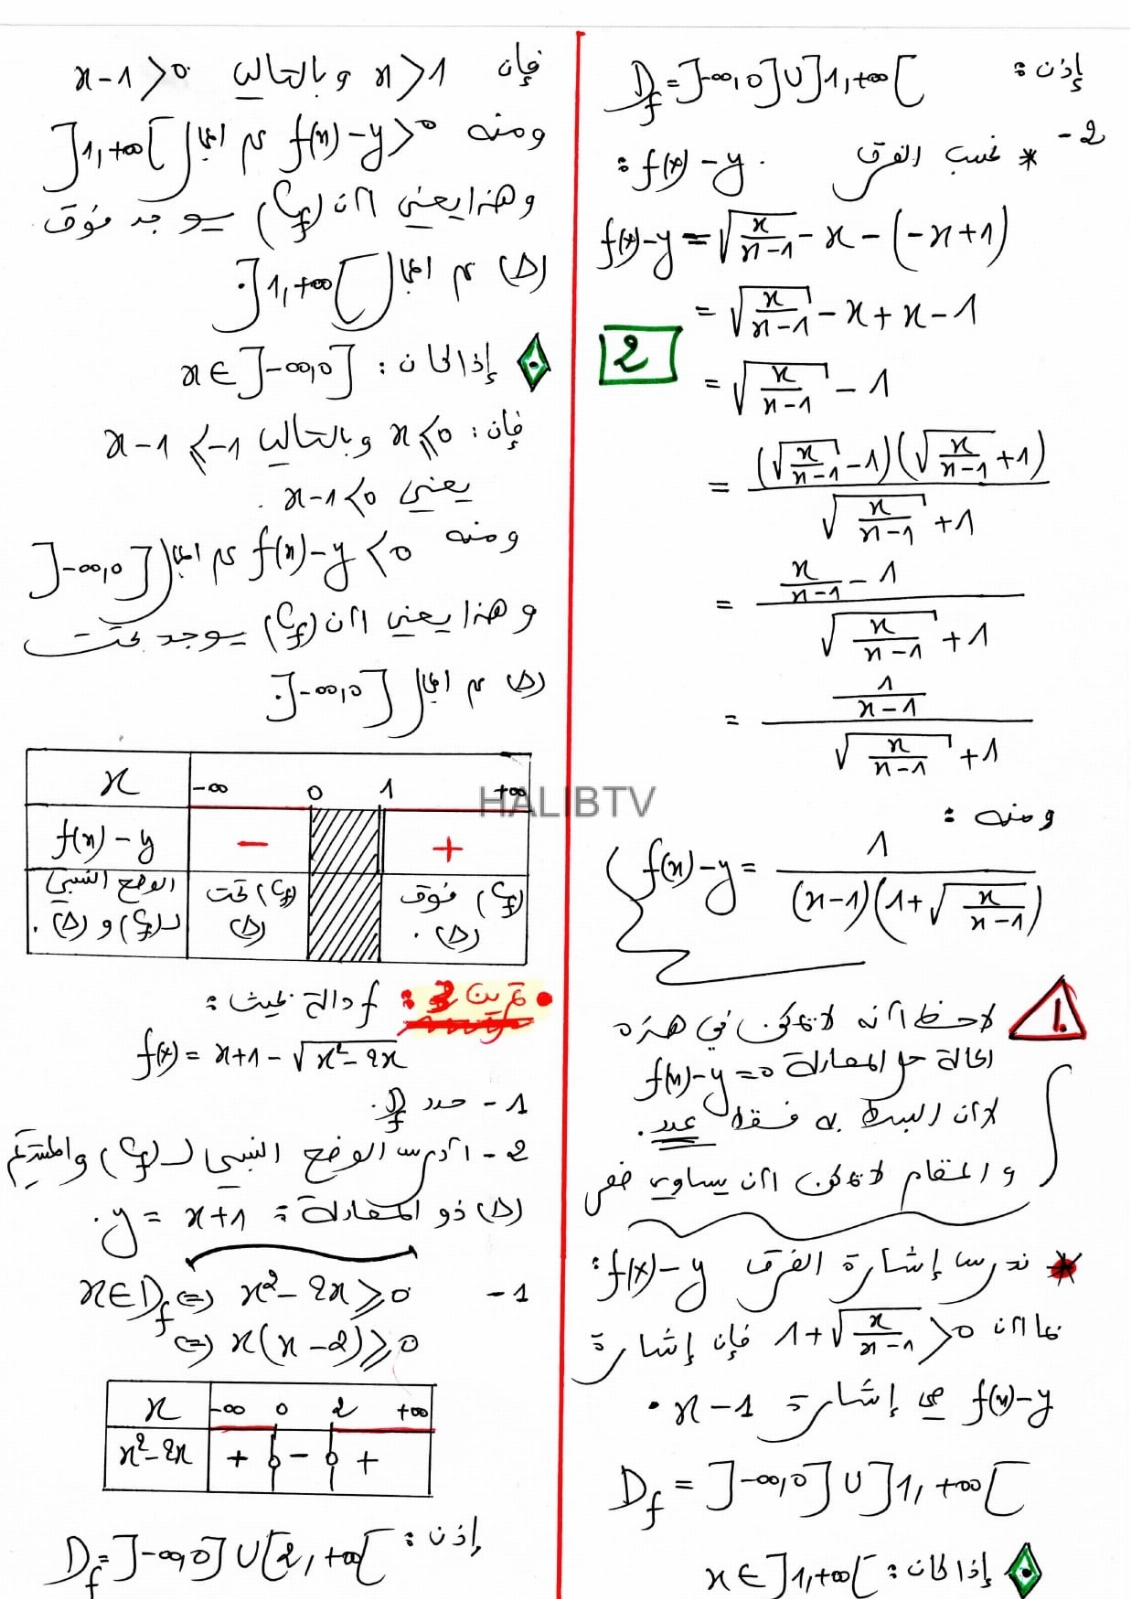 إذن : D_f = ]-∞,0] ∪ ]1,+∞[
2- * نحسب الفرق f(x) - y :
f(x) - y = √(x/(x-1)) - x - (-x+1)
= √(x/(x-1)) - x + x - 1
2
= √(x/(x-1)) - 1
= (√(x/(x-1)) - 1)(√(x/(x-1)) + 1) / (√(x/(x-1)) + 1)
= (x/(x-1) - 1) / (√(x/(x-1)) + 1)
= (1/(x-1)) / (√(x/(x-1)) + 1)
ومنه :
f(x) - y = 1 / ((x-1)(1 + √(x/(x-1))))
لاحظ أنه لا يمكن في هذه
الحالة حل المعادلة f(x) - y = 0
لأن البسط به فقط عدد.
والمقام لا يمكن أن يساوي
* ندرس إشارة الفرق f(x) - y :
بما أن 1 + √(x/(x-1)) > 0 فإن إشارة
f(x) - y هي إشارة x - 1 .
D_f = ]-∞,0] ∪ ]1,+∞[
إذا كان : x ∈ ]1,+∞[
فإن x > 1 وبالتالي x - 1 > 0
ومنه f(x) - y > 0 في المجال ]1,+∞[
وهذا يعني أن (C_f) يوجد فوق
(Δ) في المجال ]1,+∞[ .
إذا كان : x ∈ ]-∞,0]
فإن : x ⩽ 0 وبالتالي x - 1 ⩽ -1
يعني x - 1 < 0 .
ومنه f(x) - y < 0 في المجال ]-∞,0]
وهذا يعني أن (C_f) يوجد تحت
(Δ) في المجال ]-∞,0] .
x -∞ 0 1 +∞
f(x) - y - +
الوضع النسبي لـ (C_f) و (Δ) . (C_f) تحت (Δ) (C_f) فوق (Δ) .
HALIBTV
• تمرين 3 : f دالة بحيث :
f(x) = x + 1 - √(x² - 2x)
1 - حدد D_f .
2 - أدرس الوضع النسبي لـ (C_f) والمستقيم
(Δ) ذو المعادلة : y = x + 1 .
1 - x ∈ D_f ⇔ x² - 2x ⩾ 0
⇔ x(x - 2) ⩾ 0
x -∞ 0 2 +∞
x² - 2x + 0 - 0 +
إذن : D_f = ]-∞,0] ∪ [2,+∞[